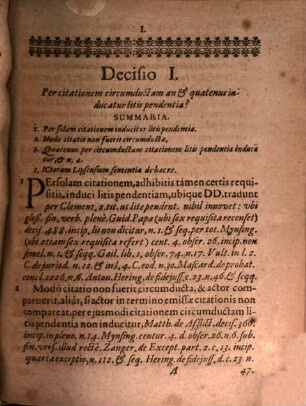 1.
Decisio I.
Per citationem circumductam an & quatenus in-
ducatur litis pendentia?
SUMMARIA.
1. Per solam citationem inducitur litis pendentia.
2. Modo citatio non fuerit circumducta,
3. Quatenus per circumductam citationem litis pendentia induca
tur & n. 4.
5. ICtorum Lipsensium sententia de hac re.
PErsolam citationem, adhibitis támen certis requi-
sitis, induci litis pendentiam, ubique DD. tradunt
per Clement. 2. tit. ut lite pendent. nihil innovet: ubi
gloss. sin. verb. plenè. Guid. Papa (ubi sex requisita recenset)
decis. 488. incip. lis non dicitur, n. 1. & seq. per tot. Mynsing.
(ubi etiam sex requisita refert) cent. 4. obser. 26. incip. non
semel. n. 1. & seqq. Gail. lib. 1. obser. 74. n. 17. Vult. in l. 2.
C. de jurisd. n. 12. & in l. 4. C. eod. n. 30. Mascard. de probat.
concl. 1226. n. 6. Anton. Hering. de fidejuss. c. 23. n. 46 & seqq.
2 Modò citatio non fuerit circumducta, & actor com-
paruerit, aliàs, si actor in termino emissæ citationis non
compareat, per ejusmodi citationem circumductam li-
tis pendentia non inducitur, Matth. de Afflict. decis. 360.
incip. in pleno, n. 14. Mynsing. centur. 4. d. obser. 26. n. 6. sub
fin. vers. illud rectè. Zanger. de Except. part. 2. c. 13. incip.
quarta exceptio, n. 112. & seq. Hering. de fidejuss. d. c. 23 n.
A 47.